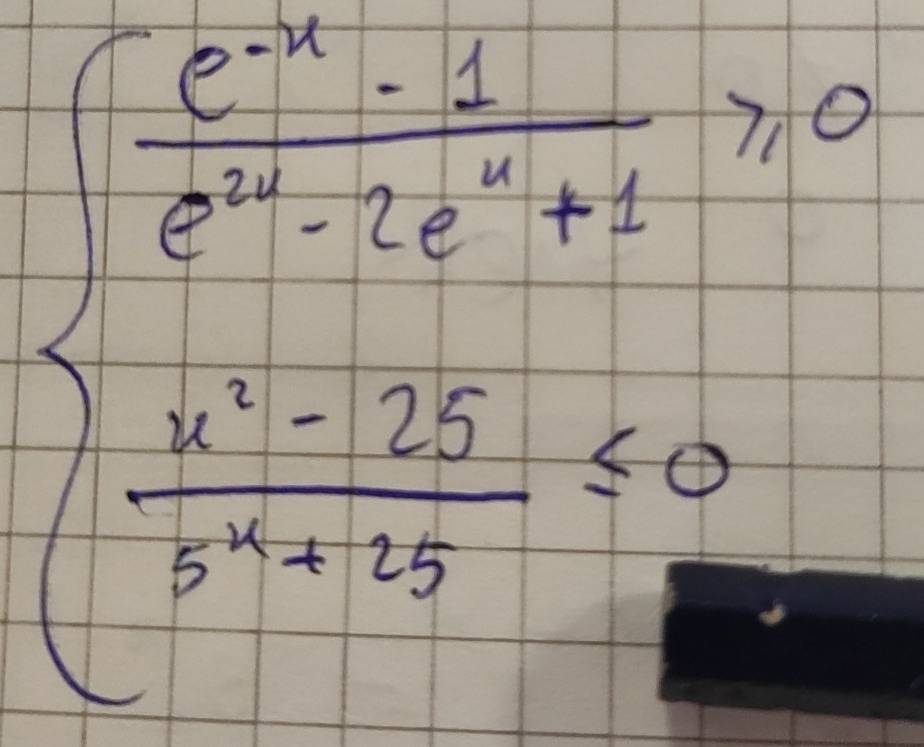 e^{-x} - 1
e^{2x} - 2e^{x} + 1
≥ 0
x² - 25
5^{x} + 25
≤ 0